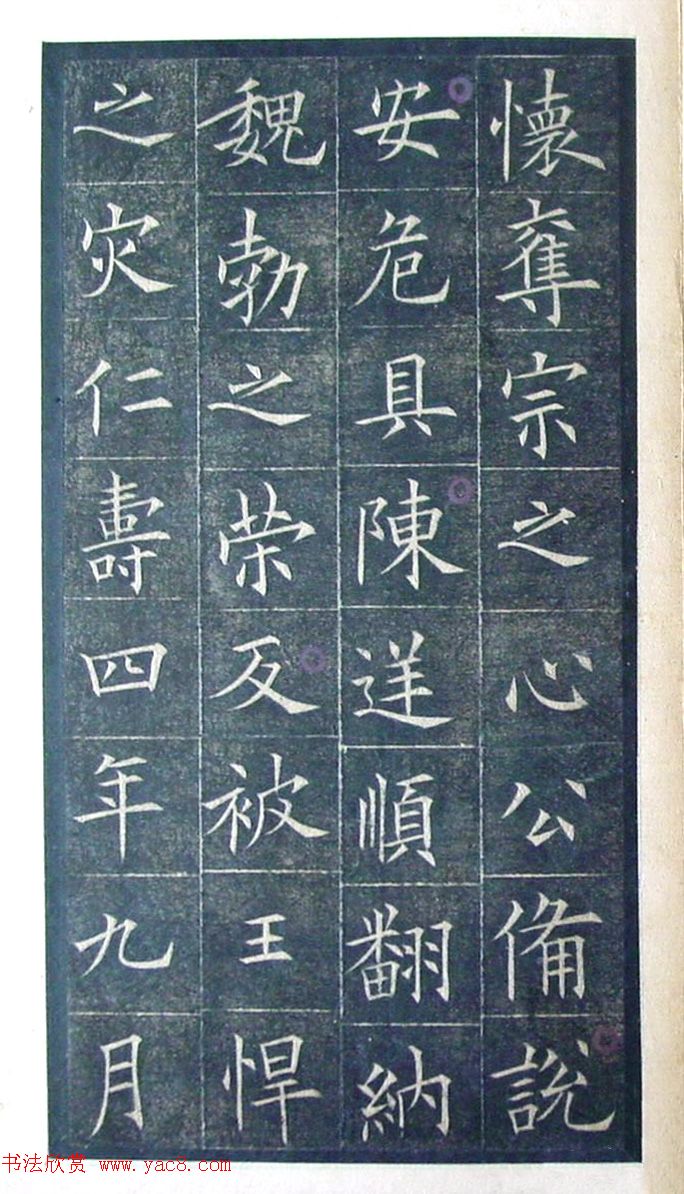 懷奪宗之心公俻說
安危具陳逆順翻納
魏勃之荣反被王悍
之灾仁壽四年九月
书法欣赏 www.yac8.com